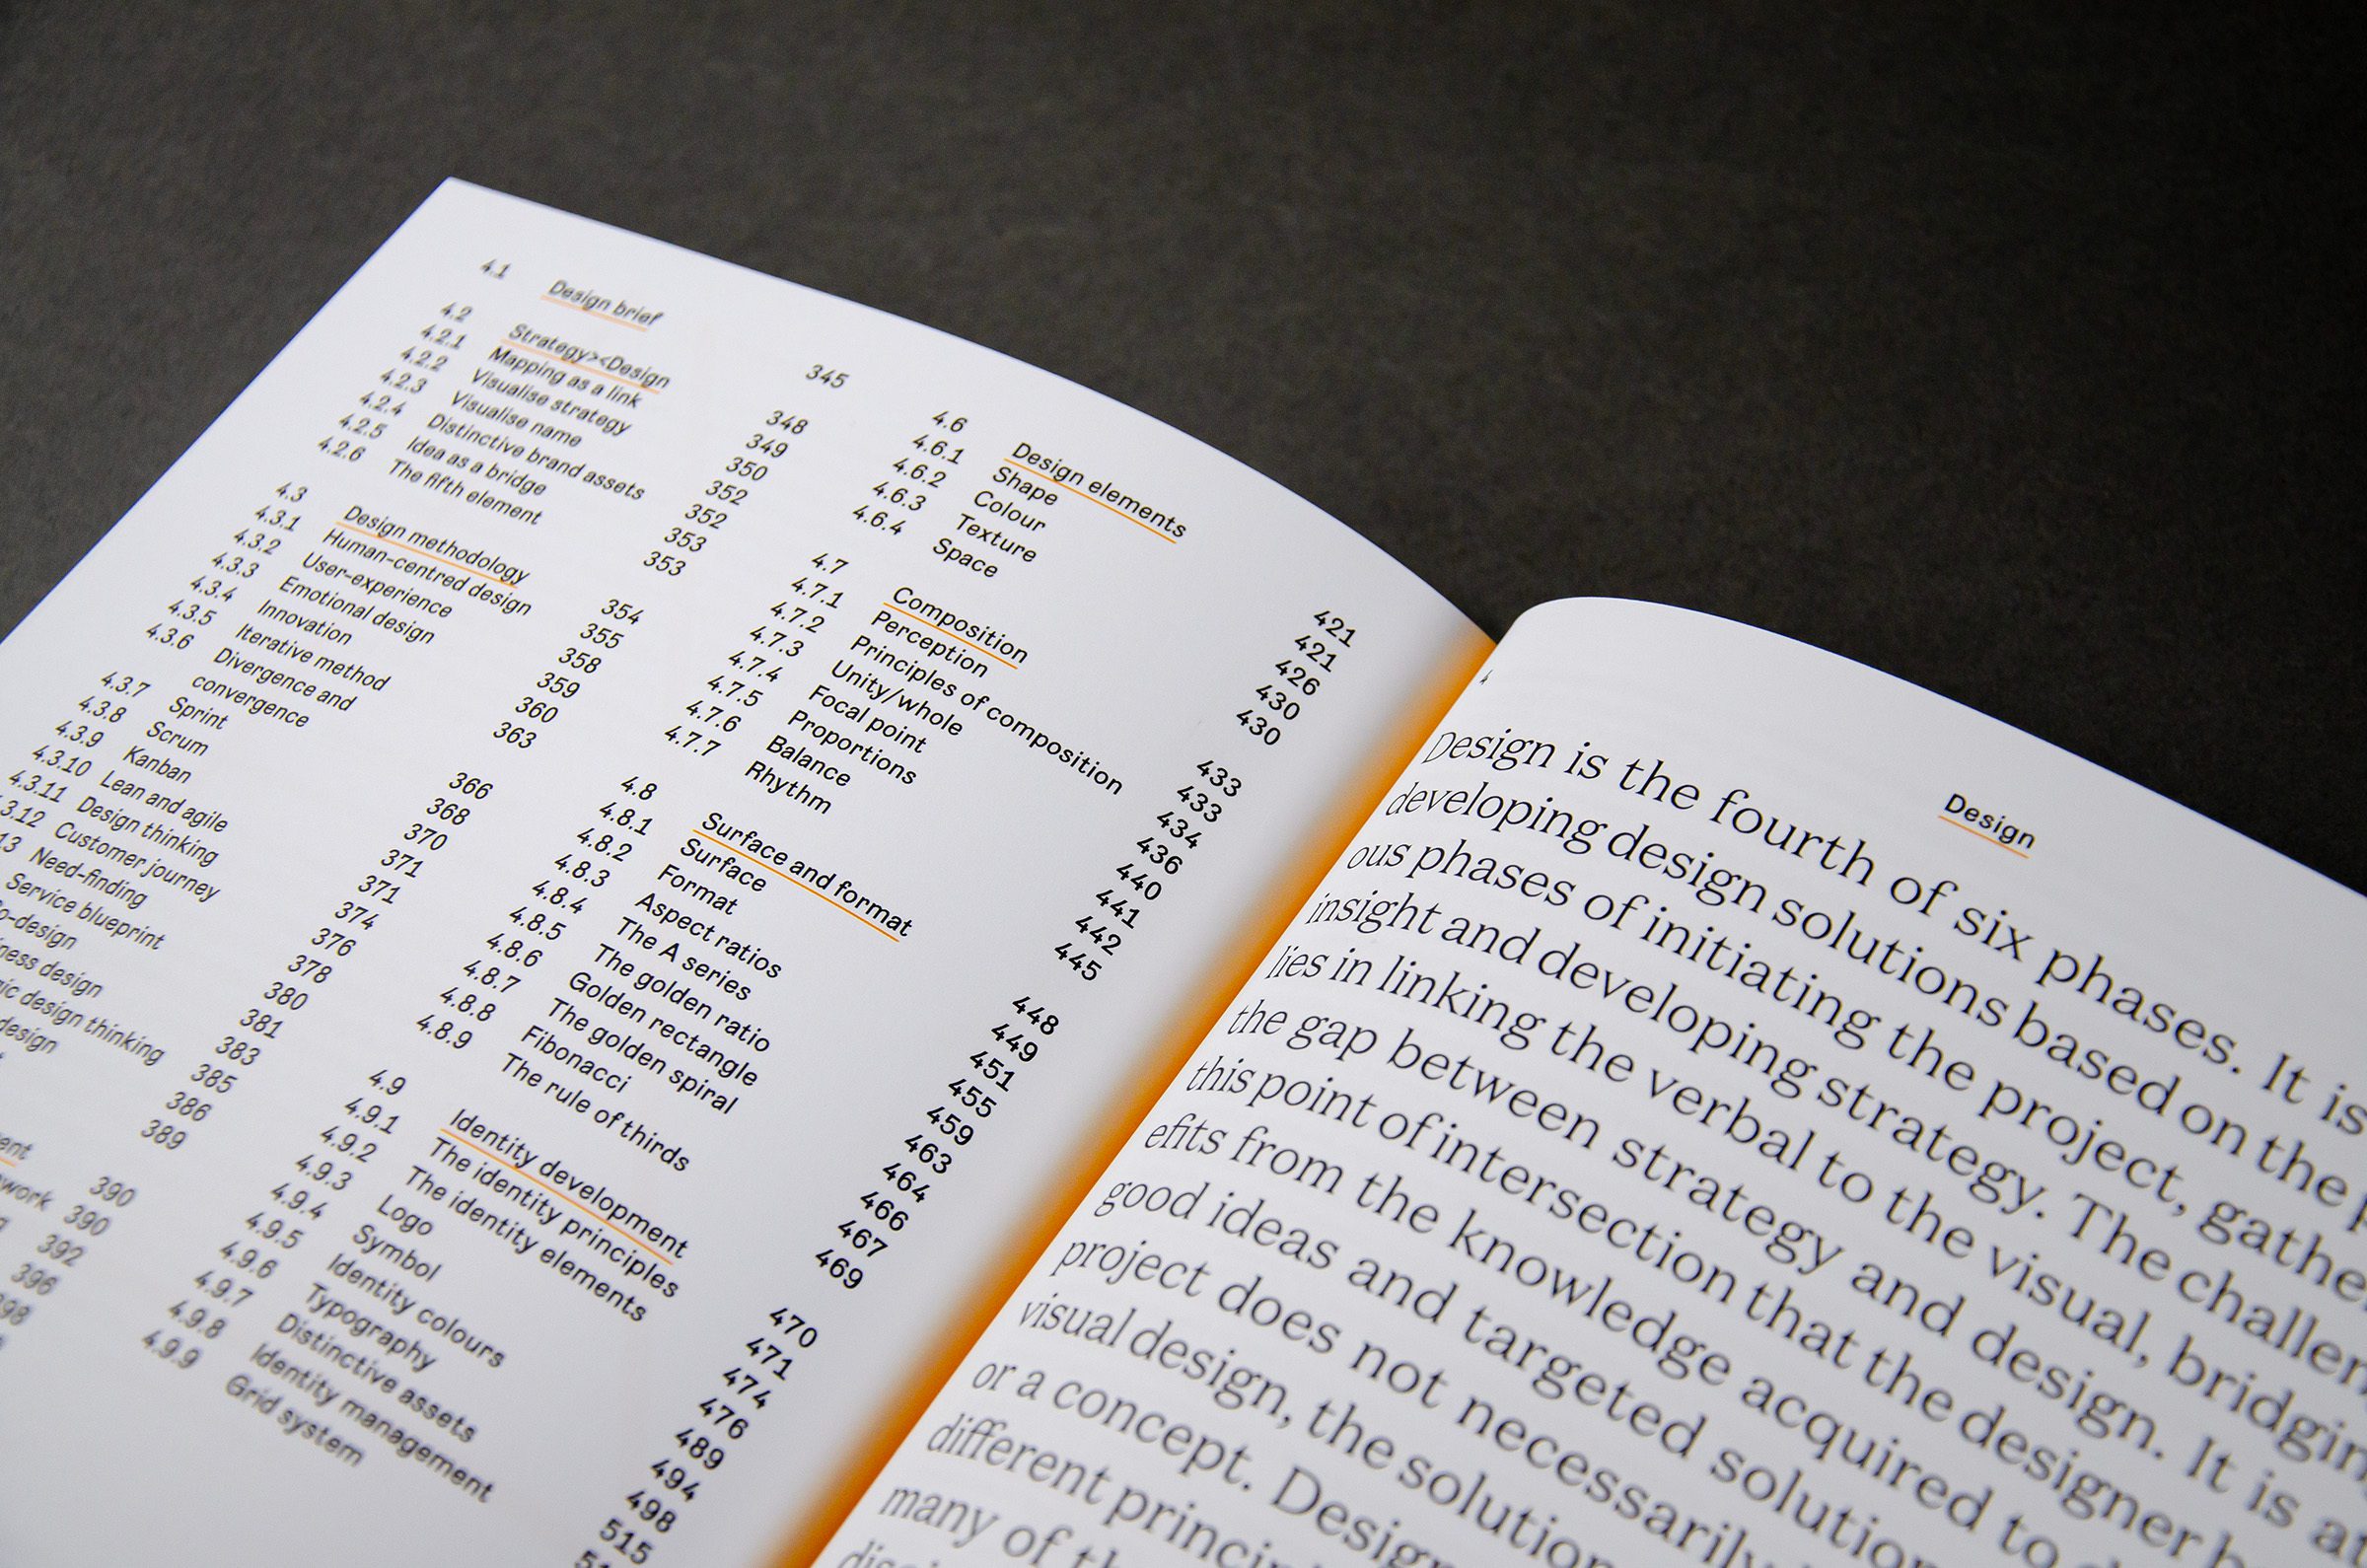 4.1 Design brief 345
4.2 Strategy><Design 348
4.2.1 Mapping as a link 349
4.2.2 Visualise strategy 350
4.2.3 Visualise name 352
4.2.4 Distinctive brand assets 352
4.2.5 Idea as a bridge 353
4.2.6 The fifth element 353
4.3 Design methodology 354
4.3.1 Human-centred design 355
4.3.2 User-experience 358
4.3.3 Emotional design 359
4.3.4 Innovation 360
4.3.5 Iterative method 363
4.3.6 Divergence and
convergence 366
4.3.7 Sprint 368
4.3.8 Scrum 370
4.3.9 Kanban 371
4.3.10 Lean and agile 371
4.3.11 Design thinking 374
3.12 Customer journey 376
13 Need-finding 378
Service blueprint 380
o-design 381
ness design 383
ic design thinking 385
design 386
389
ent 390
work 390
392
396
98
4.6 Design elements 421
4.6.1 Shape 421
4.6.2 Colour 426
4.6.3 Texture 430
4.6.4 Space 430
4.7 Composition 433
4.7.1 Perception 433
4.7.2 Principles of composition 434
4.7.3 Unity/whole 436
4.7.4 Focal point 440
4.7.5 Proportions 441
4.7.6 Balance 442
4.7.7 Rhythm 445
4.8 Surface and format 448
4.8.1 Surface 449
4.8.2 Format 451
4.8.3 Aspect ratios 455
4.8.4 The A series 459
4.8.5 The golden ratio 463
4.8.6 Golden rectangle 464
4.8.7 The golden spiral 466
4.8.8 Fibonacci 467
4.8.9 The rule of thirds 469
4.9 Identity development 470
4.9.1 The identity principles 471
4.9.2 The identity elements 474
4.9.3 Logo 476
4.9.4 Symbol 489
4.9.5 Identity colours 494
4.9.6 Typography 498
4.9.7 Distinctive assets 515
4.9.8 Identity management 51
4.9.9 Grid system
Design
Design is the fourth of six phases. It is
developing design solutions based on the p
ous phases of initiating the project, gathe
insight and developing strategy. The challen
lies in linking the verbal to the visual, bridgin
the gap between strategy and design. It is at
this point of intersection that the designer b
efits from the knowledge acquired to
good ideas and targeted solution
project does not necessarily
visual design, the solution
or a concept. Design
different princip
many of th